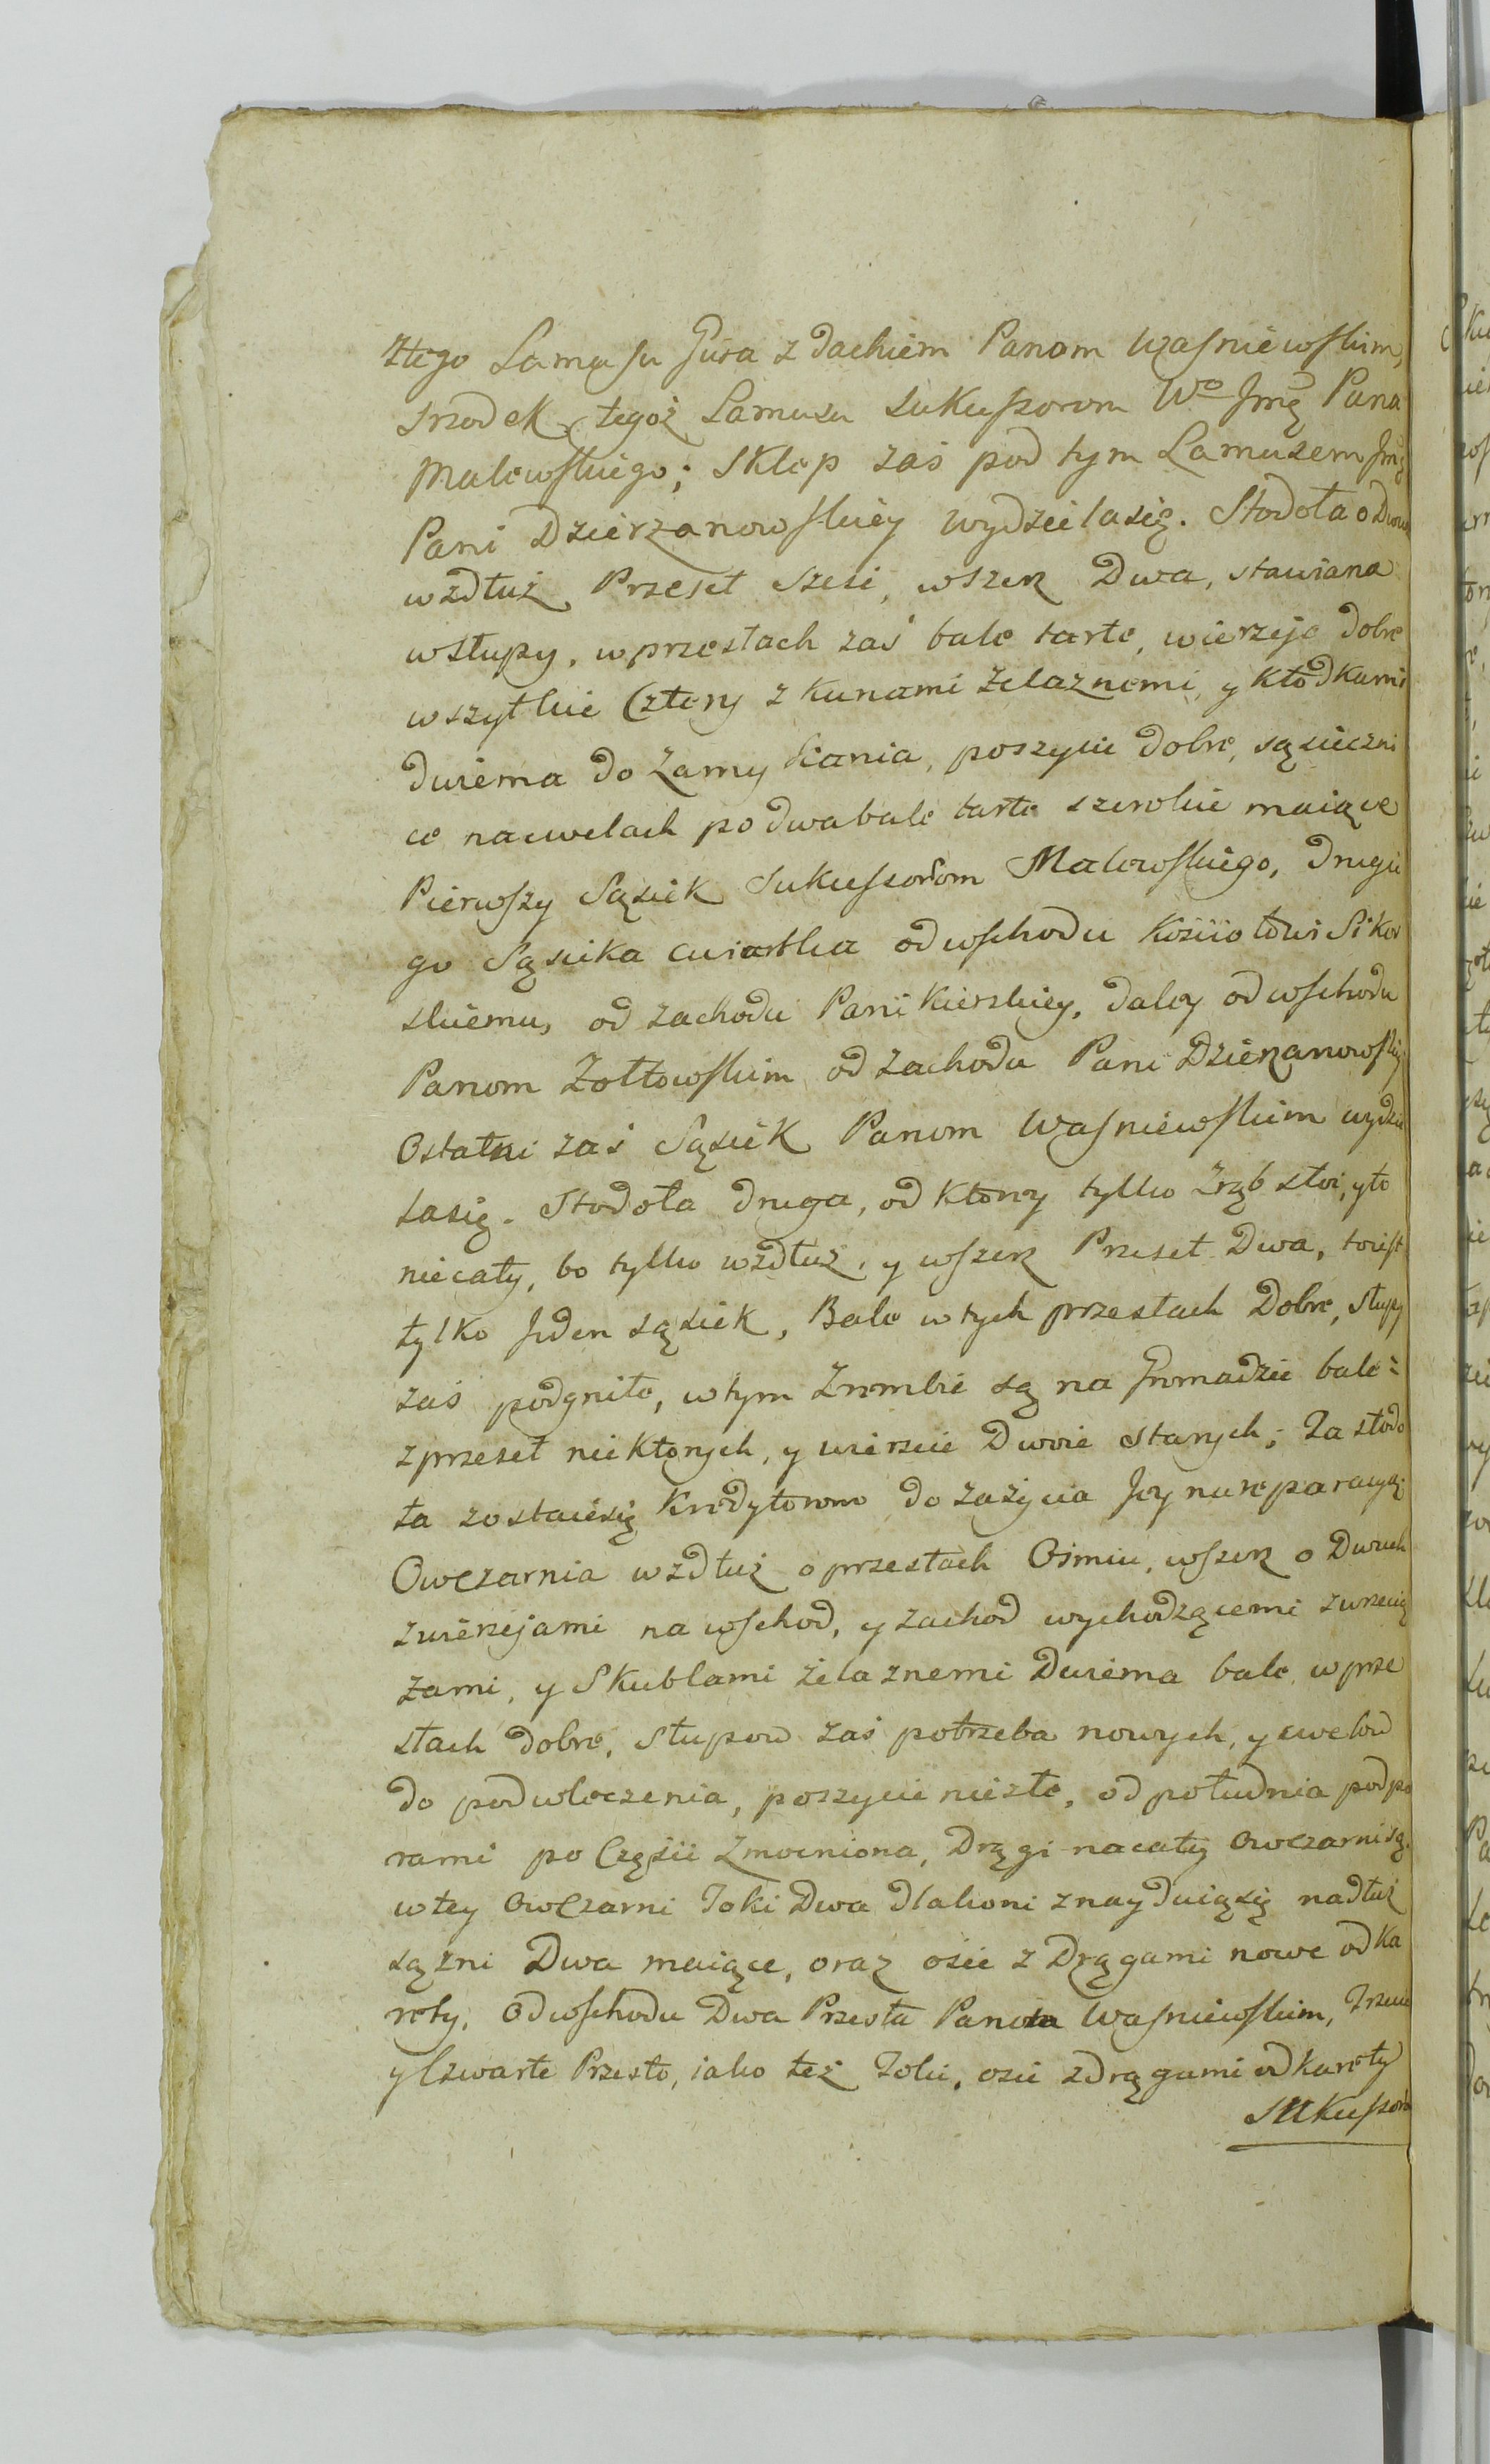 ztego Lamusu Gura z dachiem Panom Wasniewskim,
srzodek tegoż Lamusu sukussorom Wo Jmę Pana
Malewskiego; Sklep zaś pod tym Lamusem Jmę
Pani Dzierzanowskiey wydzielasię. Stodoła o Dwu
wzdłuż Przeset sześi, wszerz Dwa, stawiana
wsłupy, w przesłach zaś bale tarte, wierzeje dobre
wszytkie Cztery z kunami żelaznemi, y kłodkami
dwiema do Zamykania, poszycie dobre, sąsieczni
ce nacwelach po dwa bale tarte szerokie maiące
Pierwszy Sąsiek Sukussorom Malewskiego, drugie
go Sąsieka cwiartka odwschodu Koziiołowi Sikor
skiemu, od zachodu Pani Kierskiey, daley od wschodu
Panom Zołtowskim od Zachodu Pani Dzierzanowskiy
Ostatni zaś Sąsiek Panom Wasniewskim wydzie
lasię. Stodoła druga, od Ktorey tylko Zrąb stoi, yto
niecały, bo tylko wzdłuż, y wszerz Przeseł Dwa, toiest
tylko Jeden sąsiek, Bale w tych przesłach Dobre, słupy
zaś podgniłe, wtym Zrombie są na Gromadzie bale
zprzeseł niektorych, y wierzeie Dwoie starych; Ta stodo
ła zostaiesię Kredytorom do zażycia Jey nareparacyą.
Owczarnia wzdłuż o przesłach Ośmiu, wszerz o Dwuch
zwierzejami na wschod, y zachod wychodzącemi zwrzecią
zami, y Skublami żelaznemi Dwiema bale w prze
słach dobre, słupow zaś potrzeba nowych, y cwelow
do podwleczenia, poszycie niezłe, od południa podpo
rami po Częśii Zmocniona, Drągi nacałey Owczarni są.
w tey Owczarni Toki Dwa dlakoni znayduiąsię nadłuż
sązni Dwa maiące, oraz osie z Drągami nowe od Ka
rety. Od wschodu Dwa Przesła Panom Wasniewskim, Trzecie
y Czwarte Przesło, iako też Toki, osie z drągami od Karety
Sukussor